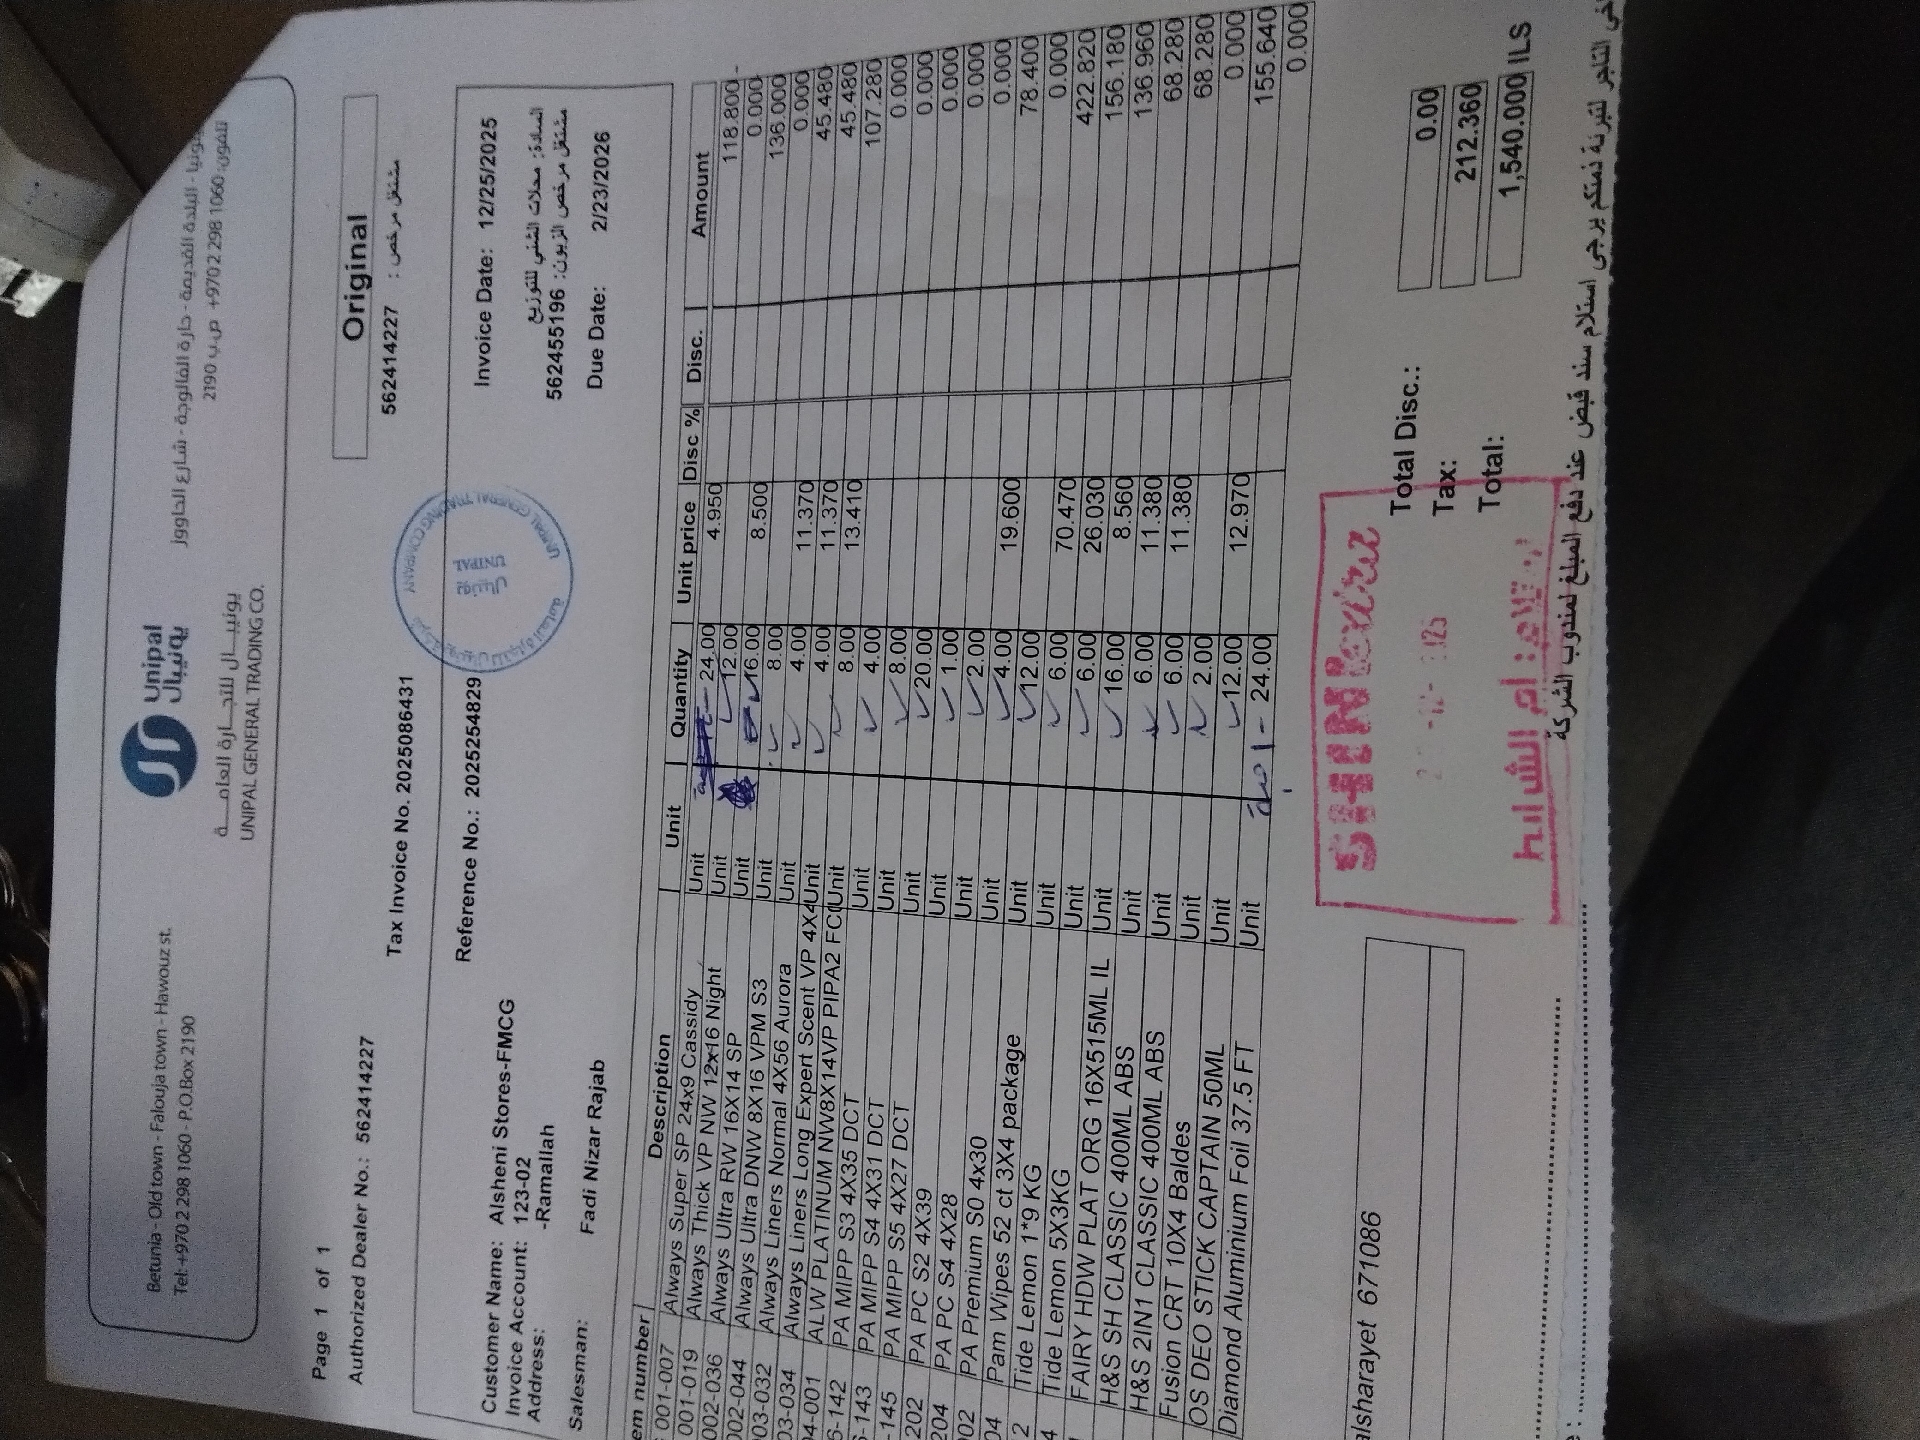 Betunia - Old town - Falouja town - Hawouz st.
Tel: +970 2 298 1060 - P.O.Box 2190
Unipal
يونيبال
يونيبـــال للتجــارة العامـــة
UNIPAL GENERAL TRADING CO.
البلدة القديمة - حارة الفالوجة - شارع الحاووز
تلفون: 1060 298 9702+ ص.ب 2190
Page 1 of 1
Original
Authorized Dealer No.: 562414227
Tax Invoice No. 2025086431
562414227 : مشتغل مرخص
UNIPAL GENERAL TRADING COMPANY
UNIPAL
يونيبال
Reference No.: 2025254829
Invoice Date: 12/25/2025
Customer Name: Alsheni Stores-FMCG
السادة: محلات الشني للتوزيع
Invoice Account: 123-02
مشتغل مرخص الزبون: 562455196
Address: -Ramallah
Due Date: 2/23/2026
Salesman: Fadi Nizar Rajab
em number Description Unit Quantity Unit price Disc % Disc. Amount
001-007 Always Super SP 24x9 Cassidy Unit 24.00 4.950 118.800
001-019 Always Thick VP NW 12x16 Night Unit 12.00 0.000
002-036 Always Ultra RW 16X14 SP Unit 16.00 8.500 136.000
002-044 Always Ultra DNW 8X16 VPM S3 Unit 8.00 0.000
003-032 Always Liners Normal 4X56 Aurora Unit 4.00 11.370 45.480
03-034 Always Liners Long Expert Scent VP 4X4 Unit 4.00 11.370 45.480
04-001 ALW PLATINUM NW8X14VP PIPA2 FC Unit 8.00 13.410 107.280
6-142 PA MIPP S3 4X35 DCT Unit 4.00 0.000
-143 PA MIPP S4 4X31 DCT Unit 8.00 0.000
-145 PA MIPP S5 4X27 DCT Unit 20.00 0.000
202 PA PC S2 4X39 Unit 1.00 0.000
204 PA PC S4 4X28 Unit 2.00 0.000
02 PA Premium S0 4x30 Unit 4.00 19.600 78.400
04 Pam Wipes 52 ct 3X4 package Unit 12.00 0.000
2 Tide Lemon 1*9 KG Unit 6.00 70.470 422.820
4 Tide Lemon 5X3KG Unit 6.00 26.030 156.180
FAIRY HDW PLAT ORG 16X515ML IL Unit 16.00 8.560 136.960
H&S SH CLASSIC 400ML ABS Unit 6.00 11.380 68.280
H&S 2IN1 CLASSIC 400ML ABS Unit 6.00 11.380 68.280
Fusion CRT 10X4 Baldes Unit 2.00 0.000
OS DEO STICK CAPTAIN 50ML Unit 12.00 12.970 155.640
Diamond Aluminium Foil 37.5 FT Unit 24.00 0.000
Total Disc.: 0.00
Tax: 212.360
Total: 1,540.000 ILS
alsharayet 671086
ام الشرايط
التاجر لتبرئة ذمتكم يرجى استلام سند قبض عند دفع المبلغ لمندوب الشركة